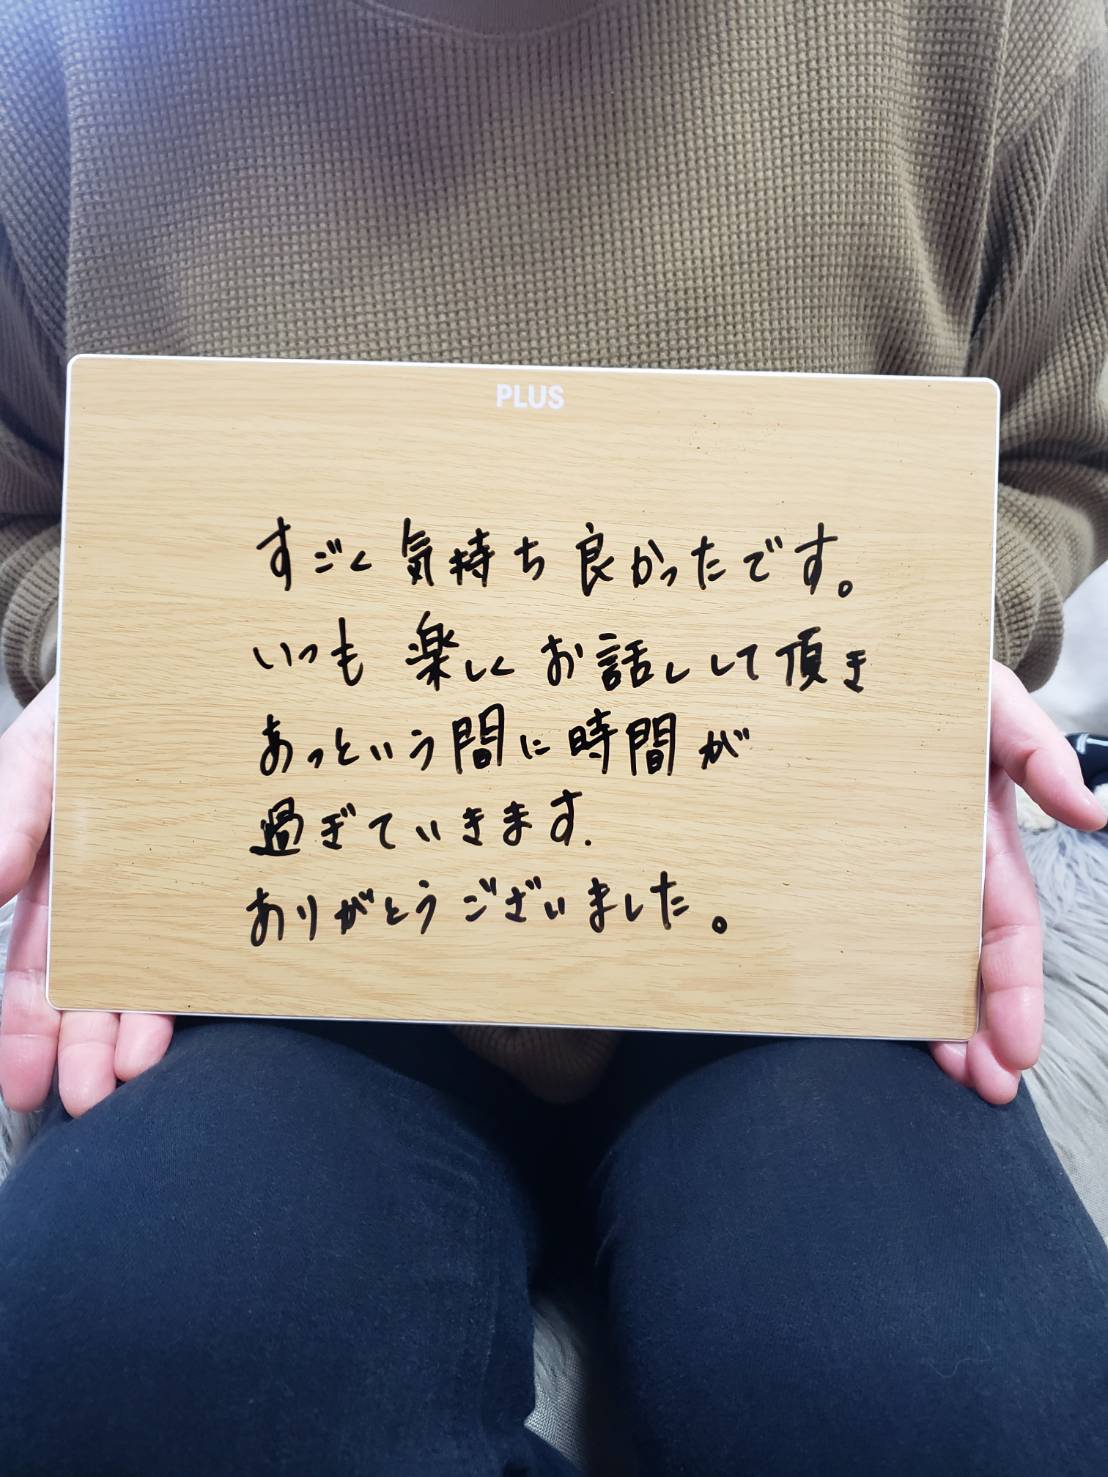 PLUS
すごく気持ち良かったです。
いつも楽しくお話しして頂き
あっという間に時間が
過ぎていきます.
ありがとうございました。